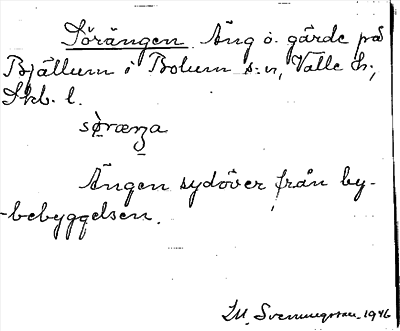 Sörängen Äng o. gärde på
Bjällum i Bolum s:n, Valle h.,
Skb. l.
sö̀ræŋa
Ängen sydöver från by-
-bebyggelsen.
M. Svenningsson 1946